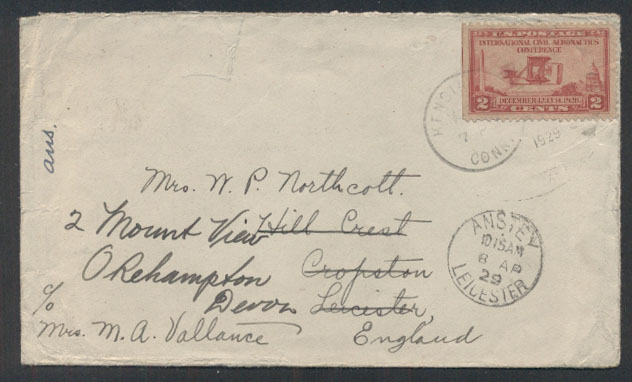 U.S. POSTAGE
INTERNATIONAL CIVIL AERONAUTICS
CONFERENCE
DECEMBER 12,13,14, 1928
2 CENTS 2
CONN.
1929
ans.
Mrs. W. P. Northcott.
2 Mount View Hill Crest
Okehampton Cropston
Devon Leicester,
c/o
Mrs. M. A. Vallance England
ANSTEY
1015AM
8 AP
29
LEICESTER